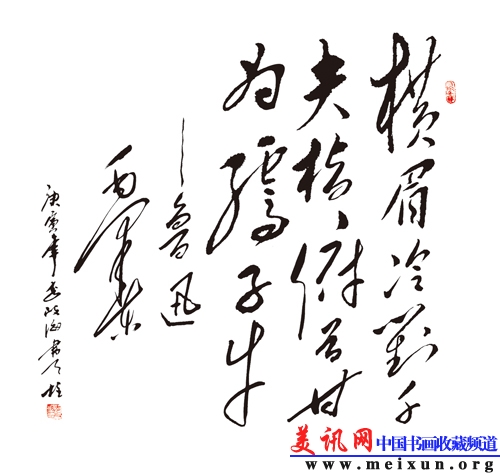 横眉冷對千
夫指、俯首甘
为孺子牛
—鲁迅
毛泽东
庚寅年
美讯网 中国书画收藏频道
www.meixun.org